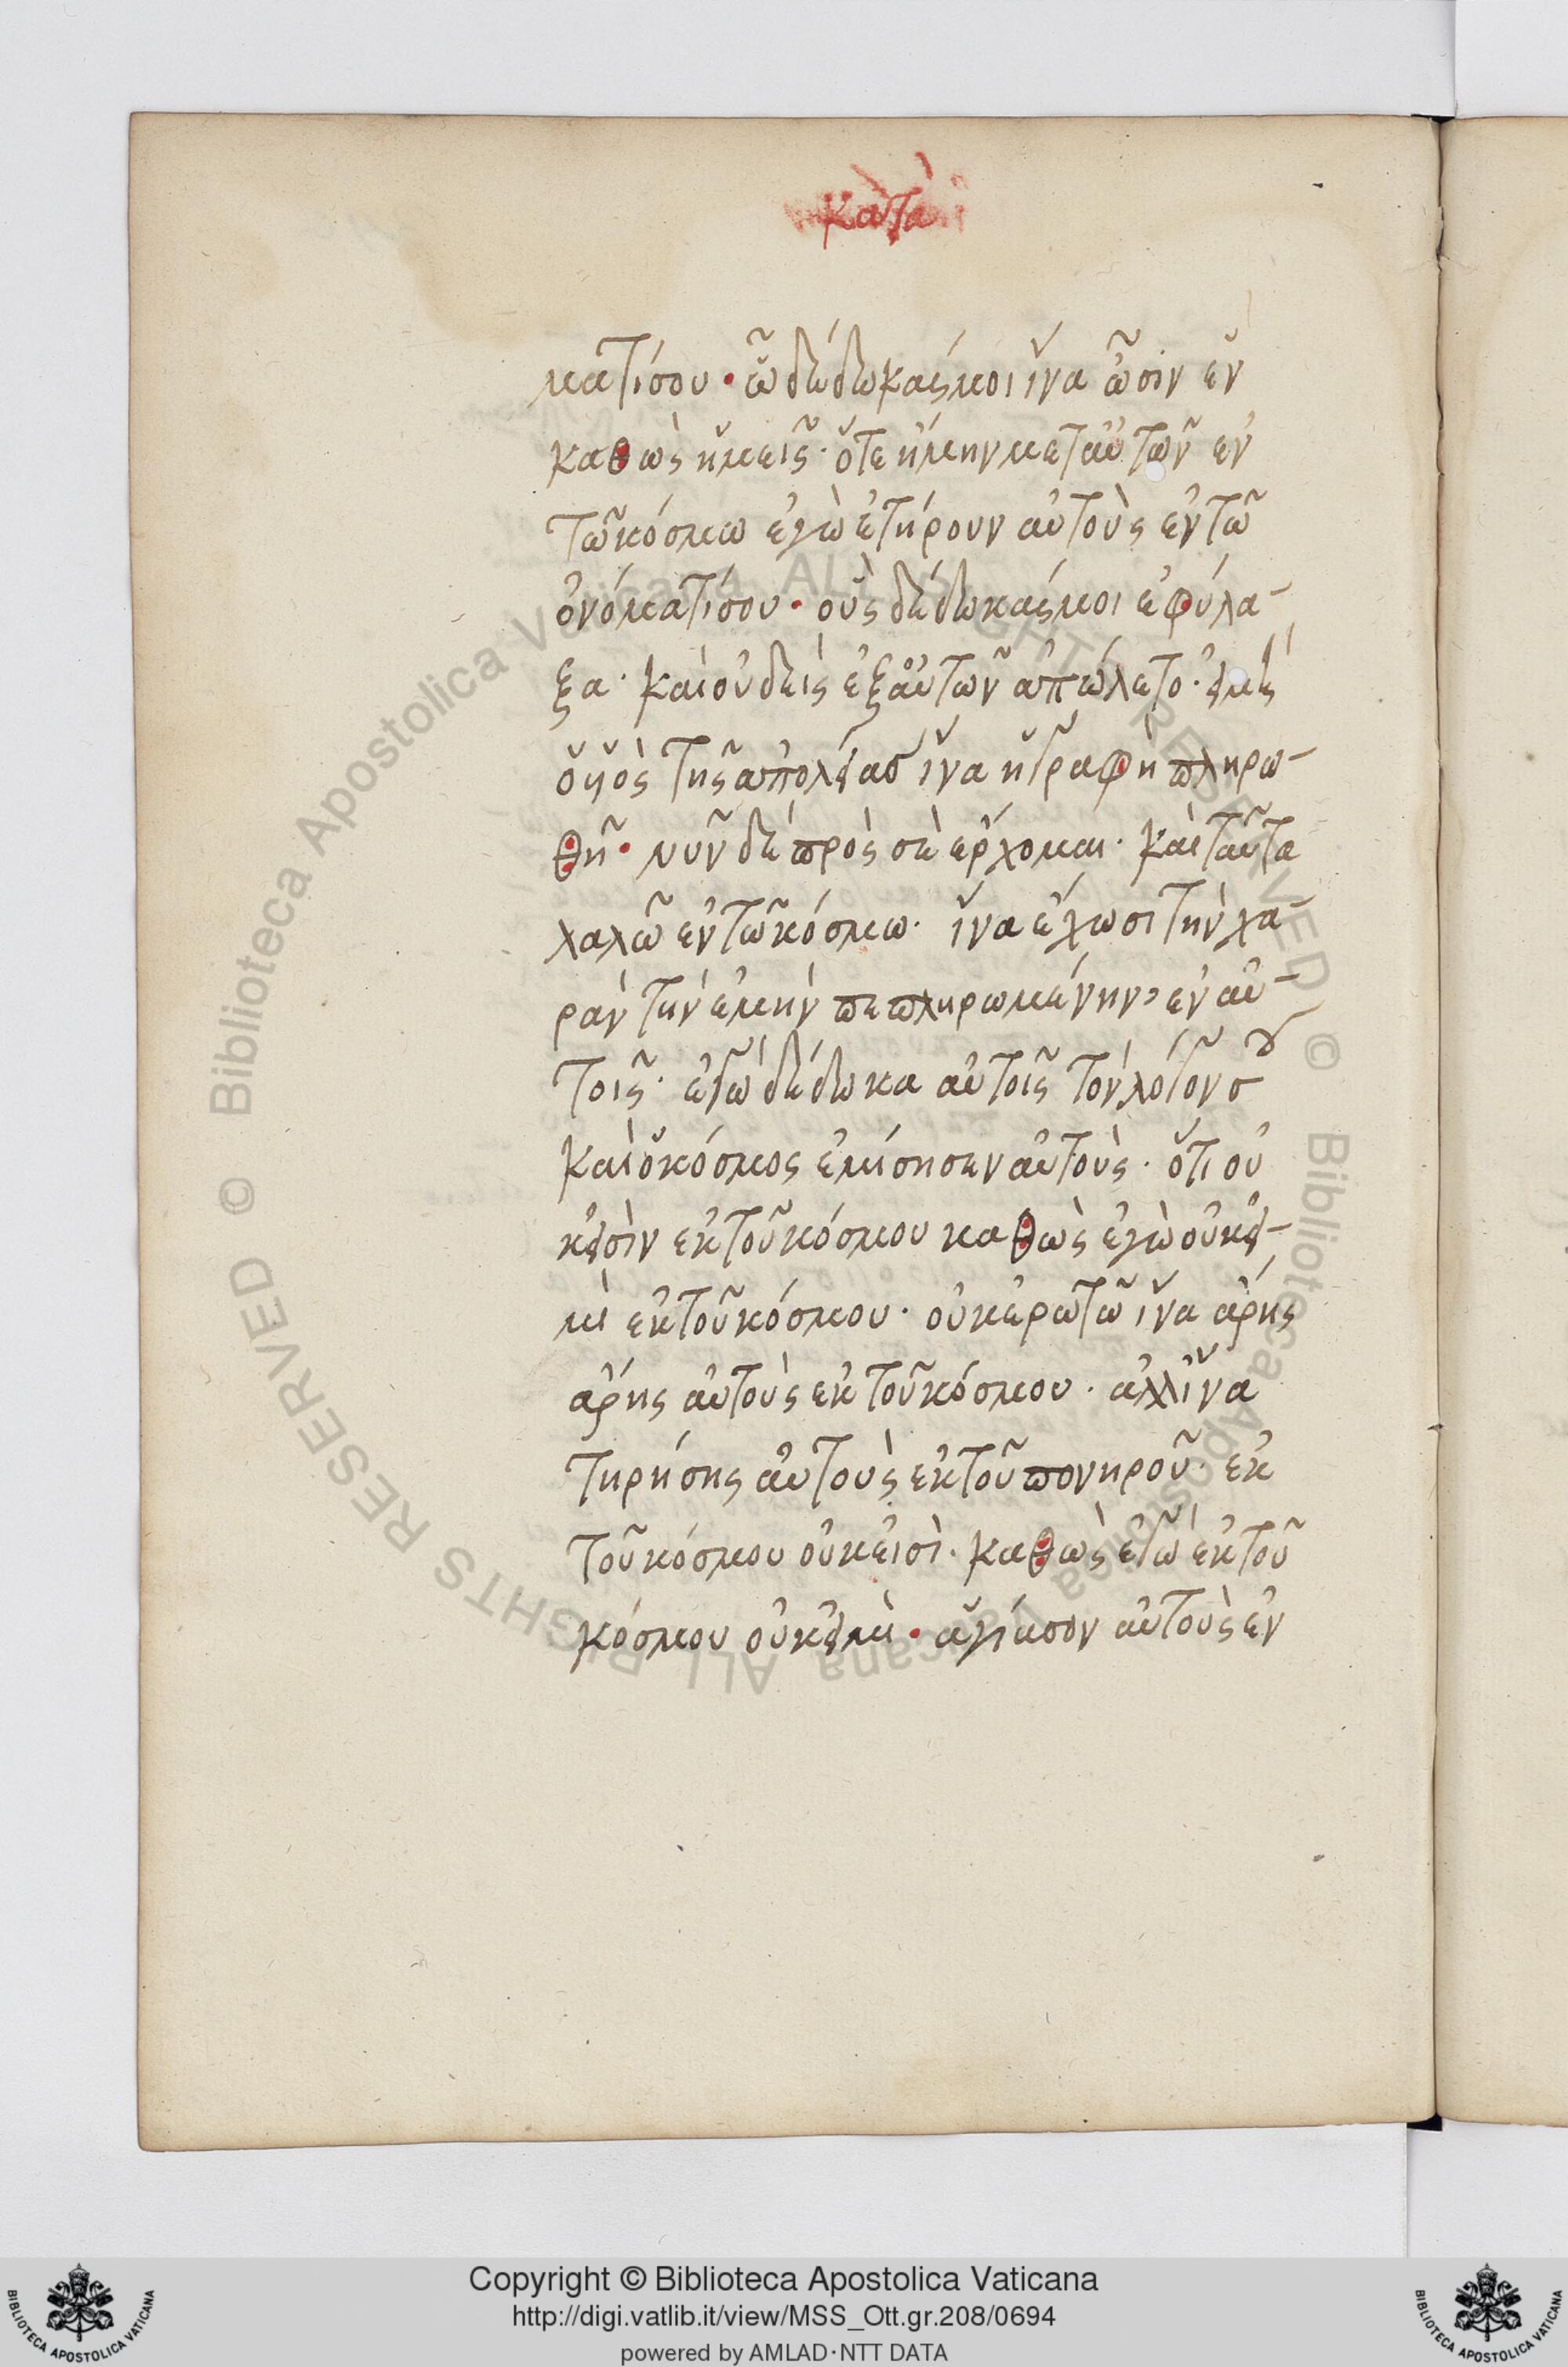 κατὰ
ματί σου· ὧ δέδωκάς μοι ἵνα ὦσὶν ἓν
καθὼς ἡμεῖς· ὅτε ἤμην μεταὐτῶν ἐν
τῶ κόσμω ἐγὼ ἐτήρουν αὐτοὺς ἐν τῶ
ὀνόματί σου· οὓς δέδωκάς μοι ἐφύλα-
ξα· καὶ οὐδεὶς ἐξ αὐτῶν ἀπώλετο· εἰμὴ
ὁ ὑϊὸς τῆς ἀπολείας ἵνα ἡ γραφὴ πληρω-
θῆ· νῦν δὲ πρὸς σὲ ἔρχομαι· καὶ ταῦτα
λαλῶ ἐν τῶ κόσμω· ἵνα ἔχωσι τὴν χα-
ρὰν τὴν ἐμὴν πεπληρωμένην, ἐν αὐ-
τοῖς· ἐγὼ δέδωκα αὐτοῖς τὸν λόγον σου
καὶ ὁ κόσμος ἐμίσησεν αὐτοὺς· ὅτι οὐ
κεἰσὶν ἐκ τοῦ κόσμου καθὼς ἐγὼ οὐκ εἰ-
μὶ ἐκ τοῦ κόσμου· οὐκ ἐρωτῶ ἵνα ἄρης
ἄρης αὐτοὺς ἐκ τοῦ κόσμου· ἀλλ ἵνα
τηρήσης αὐτοὺς ἐκ τοῦ πονηροῦ· ἐκ
τοῦ κόσμου οὐκ εἰσὶ· καθὼς ἐγὼ ἐκ τοῦ
κόσμου οὐκ εἰμὶ· ἁγίασον αὐτοὺς ἐν
© Biblioteca Apostolica Vaticana ALL RIGHTS RESERVED © Biblioteca Apostolica Vaticana ALL RIGHTS RESERVED
Copyright © Biblioteca Apostolica Vaticana
http://digi.vatlib.it/view/MSS_Ott.gr.208/0694
powered by AMLAD·NTT DATA
BIBLIOTECA APOSTOLICA VATICANA
BIBLIOTECA APOSTOLICA VATICANA